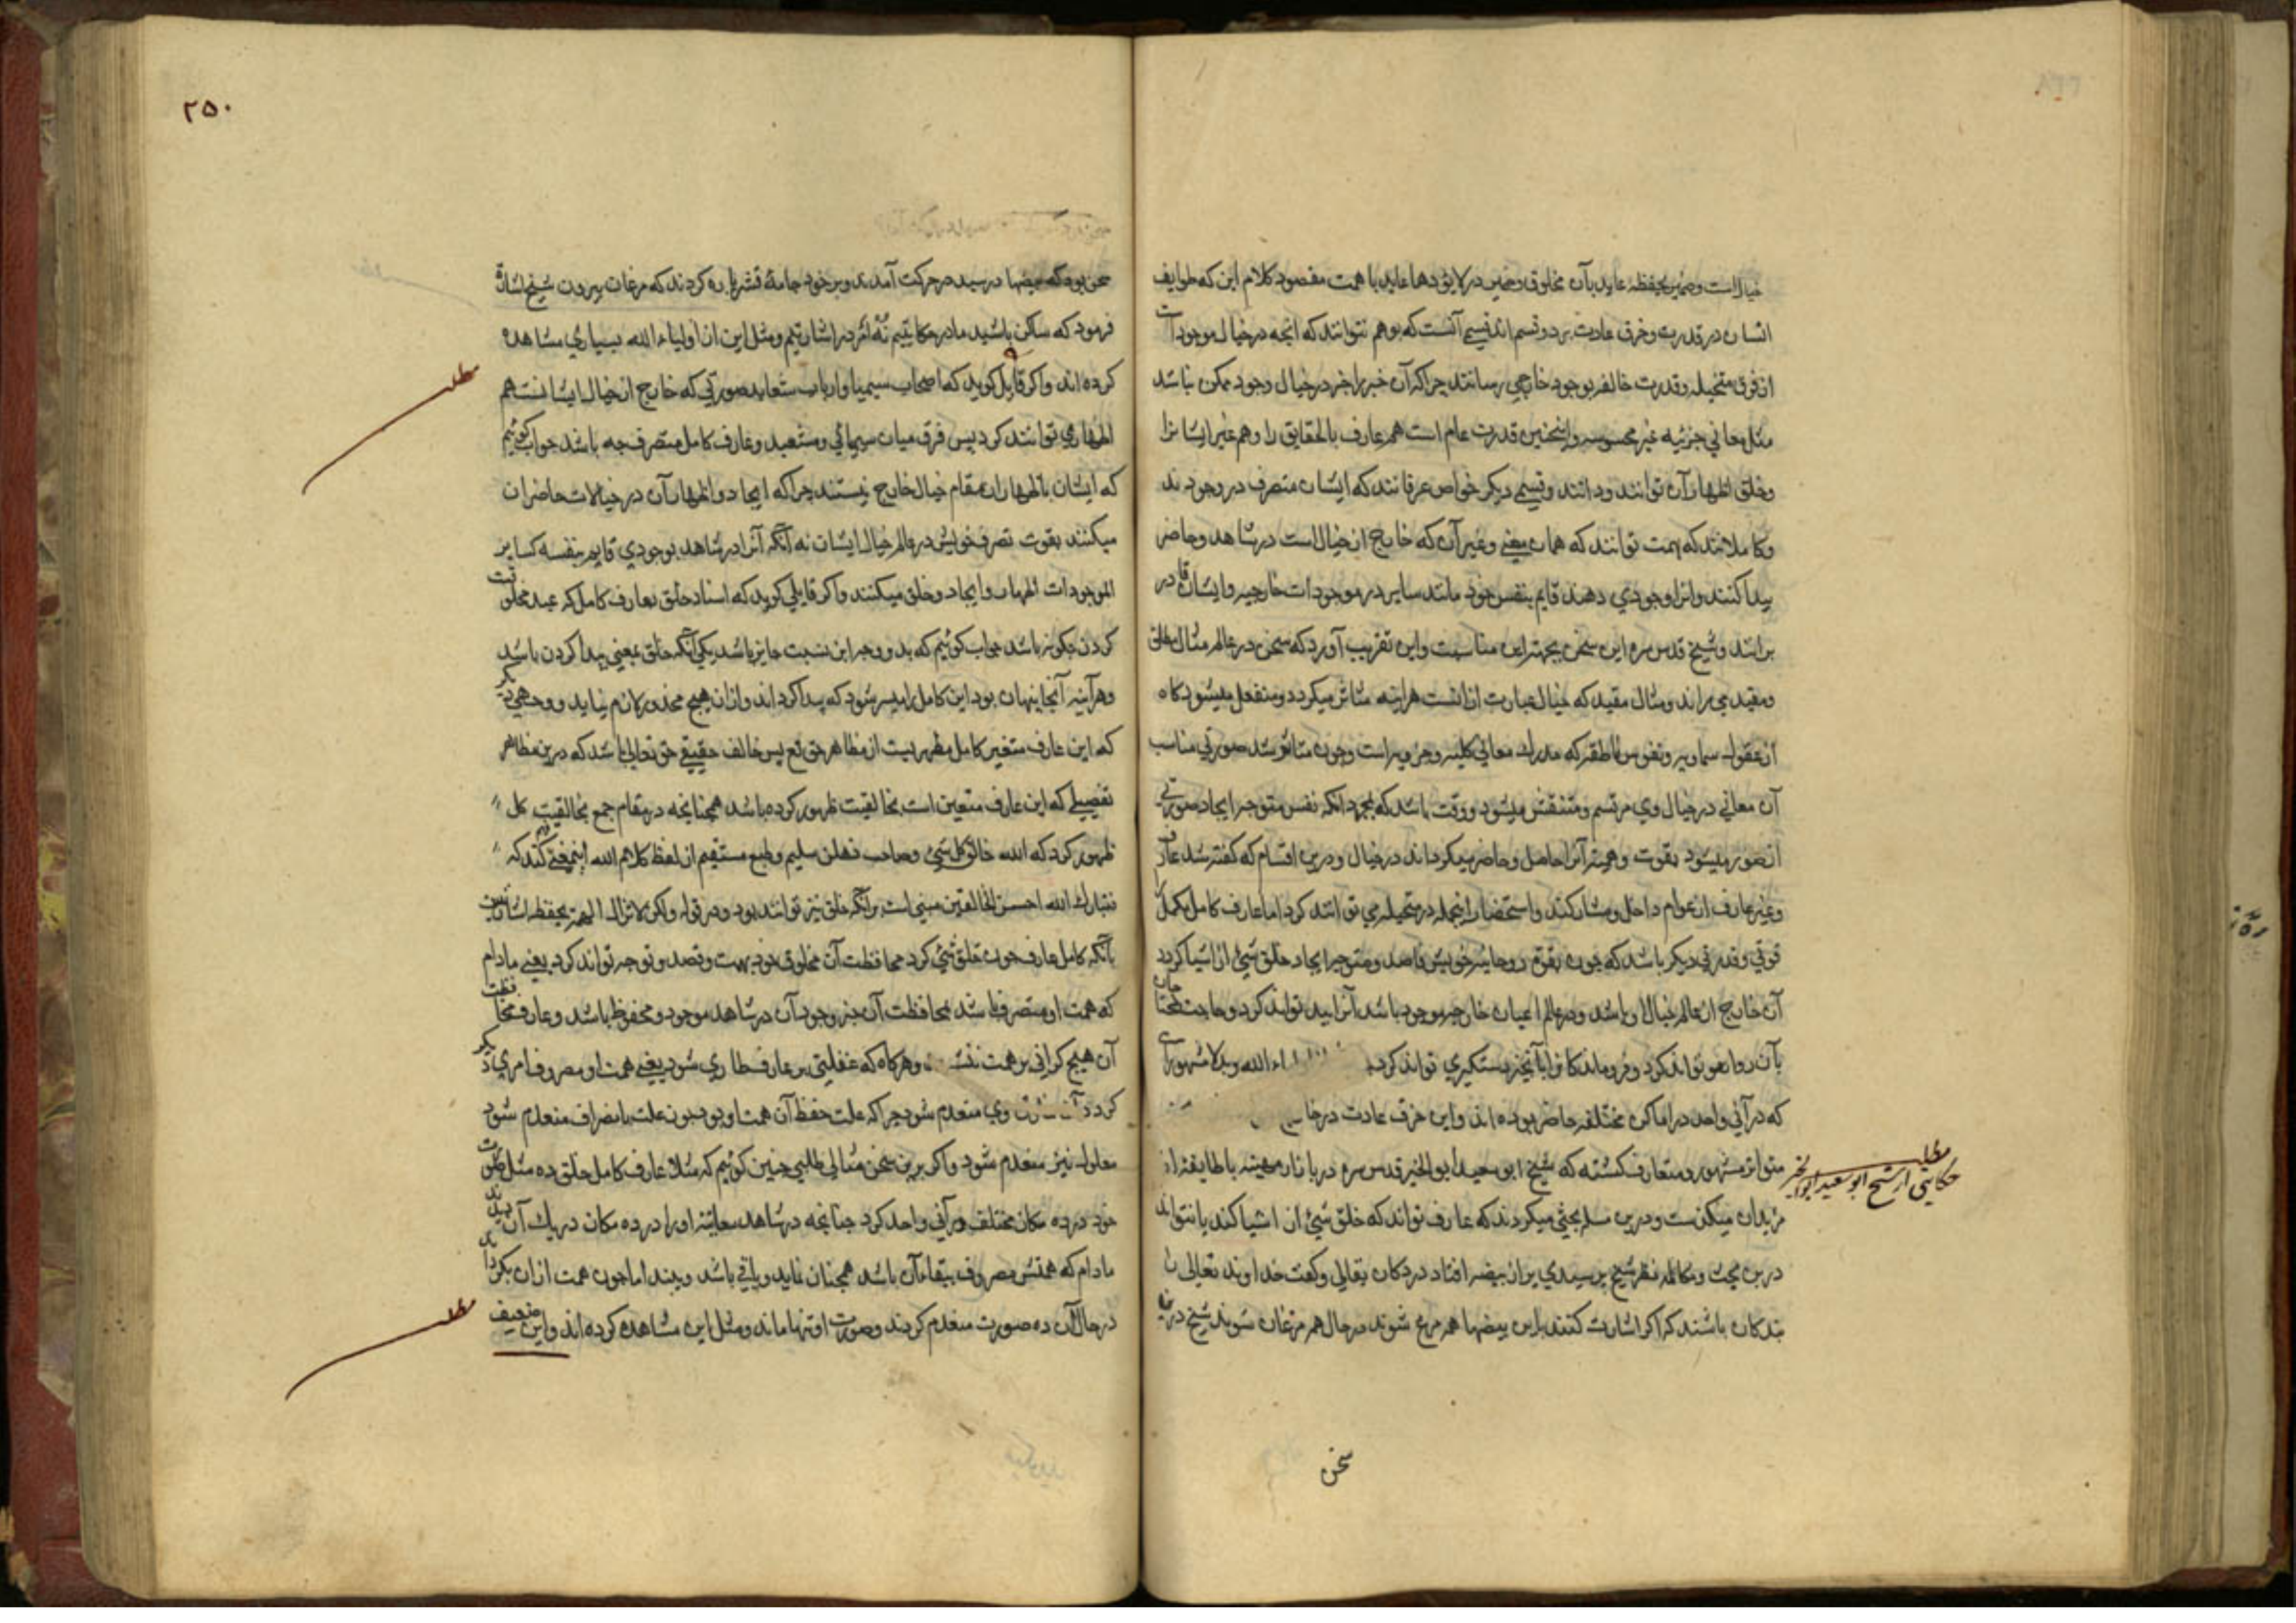 خیال است و ضمیر یحفظه عاید بآن مخلوق و ضمیر در لایؤدها عاید با همت مقصود کلام این که طوایف
انسان در قدرت و خرق عادت بر دو قسم اند قسمی آنست که بوهم نتوانند که انچه در خیال موجود است
از قوت متخیله و قدرت خالقه بوجود خارجی رسانند چرا که آن خبر را جز در خیال وجود ممکن نباشد
مثل معانی جزئیه غیر محسوسه و اینچنین قدرت عام است هم عارف بالحقایق را و هم غیر ایشانرا
و خلق اظهار آن توانند و دانند و قسمی دیگر خواص عرفانند که ایشان متصرف در وجودند
و کاملانند که بهمت توانند که همان معنی و غیر آن که خارج از خیال است در شاهد و حاضر
پیدا کنند و انرا وجودی دهند قایم بنفس خود مانند سایر در موجودات خارجیه و ایشان قادر
براند و شیخ قدس سره این سخن بجهت این مناسبت و این تقریب آورد که سخن در عالم مثال مطلق
و مقید می راند و مثال مقید که خیال عبارت ازانست هراینه متاثر میگردد و منفعل میشود کاه
از عقول سماویه و نفوس ناطقه که مدرک معانی کلیه و جزویه است و چون متاثر شد صورتی مناسب
آن معانی در خیال وی مرتسم و منتقش میشود و وقت باشد که بمجرد انکه نفس متوجه ایجاد صورتی
از صور میشود بقوت وهمیه آنرا حاصل و حاضر میگرداند در خیال و درین اقسام که گفته شد عارف
و غیر عارف از عوام داخل و مشارکند و استحضار اینجمله در متخیله می توانند کرد اما عارف کامل مکمل را
قوتی و قدرتی دیگر باشد که چون بقوة روحانیه خویش قاصد و متوجه ایجاد خلق شئ از اشیا گردد
آن خارج از عالم خیال او باشد و در عالم اعیان خارجیه موجود باشد آنرا پدید تواند کرد و حاجت محتاجان
بآن روا هم تواند کرد و فرو ماندکانرا بآنچیز دستگیری تواند کرد
که در آنی واحد در اماکن مختلفه حاضر بوده اند و این خرق عادت در
متواتر مشهور و متعارف گشته که شیخ ابو سعید ابو الخیر قدس سره در بازار میهنه با طایفه از
مریدان میگذشت و درین مسله بحثی میکردند که عارف تواند که خلق شئ از اشیا کند یا نتواند
درین بحث و مکالمه نظر شیخ بر سبدی پر از بیضه افتاد در دکان بقالی و گفت خداوند تعالی را
بندکان باشند که اکر اشارت کنند باین بیضها همه مرغ شوند در حال همه مرغان شوند شیخ درین
سخن
مطلب
حکایتی از شیخ ابو سعید ابو الخیر
۲۵۰
سخن بود که بیضها در سبد در حرکت آمدند و بر خود جامهٔ قشر پاره کردند که مرغان بیرون شیخ اشارة
فرمود که ساکن باشید ما در حکایتیم نه اندر اشارتیم و مثل این از اولیاء الله بسیاری مشاهده
کرده اند و اکر قایل گوید که اصحاب سیمیا و ارباب شعابد صورتی که خارج از خیال ایشانست هم
اظهاری توانند کرد پس فرق میان سیمیائی و مشعبد و عارف کامل متصرف چه باشد جواب گوئیم
که ایشان باظهار ان مقام خیال خارج نیستند چرا که ایجاد و اظهار آن در خیالات حاضران
میکنند بقوت تصرف خویش در عالم خیال ایشان نه آنکه آنرا در شاهد بوجودی قایم بنفسه کسایر
الموجودات اظهار و ایجاد و خلق میکنند و اکر قایلی گوید که اسناد خلق بعارف کامل که عبد مخلوقست
کردن چکونه باشد جواب گوئیم که بدو وجه این نسبت جایز باشد یکی آنکه خلق بمعنی پیدا کردن باشد
و هرآینه آنجا پنهان بود این کامل را میسر شود که پیدا کرداند و ازان هیچ محذور لازم نیاید و وجهی دیگر
که این عارف متغیر کامل مظهریست از مظاهر حق تع پس خالف حقیقی حق تعالی باشد که درین مظاهر
تفصیلی که این عارف متعین است بخالقیت ظهور کرده باشد همچنانچه در مقام جمع بخالقیت کل
ظهور کرد که الله خالق کل شئ و صاحب ذهن سلیم و طبع مستقیم از لفظ کلام الله اینمعنی فهم کند که
فتبارک الله احسن الخالقین مبنی است برآنکه خلق نیز توانند بود و در قوله ولکن لاتزال الهمة یحفظه اشارتست
بآنکه کامل عارف چون خلق شئ کرد محافظت آن مخلوق خود بهمت و قصد و توجه تواند کرد یعنی مادام
که همت او متصرف باشد محافظت آن چیز وجود آن در شاهد موجود و محفوظ باشد و عارف محافظت
آن هیچ کرانی بر همت و هرگاه که غفلتی بر عارف طاری شود یعنی همت او مصروف امری دیگر
گردد آن وی منعدم شود چرا که علت حفظ آن همت او بود چون علت بانصراف منعدم شود
معلول نیز منعدم شود و اکر برین سخن مثالی طلبی چنین گوئیم که مثلا عارف کامل خلق ده مثل صورت
خود در ده مکان مختلف در آنی واحد کرد چنانچه در شاهد معاینه او را در ده مکان در یک آن دیدند
مادام که همتش مصروف ببقاء آن باشد همچنان نماید و باقی باشد و بیند اما چون همت ازان بکرداند
در حال آن ده صورت منعدم کردند و صورت او تنها ماند و مثل این مشاهده کرده اند و این ضعیف
مطلب
مطلب